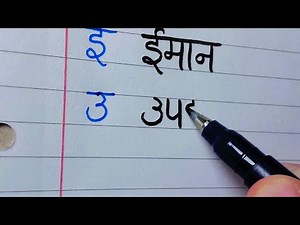 ई ईमान
उ उप